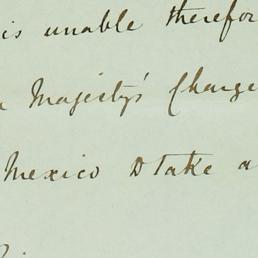 is unable therefor
Majesty's Charge
Mexico to take a